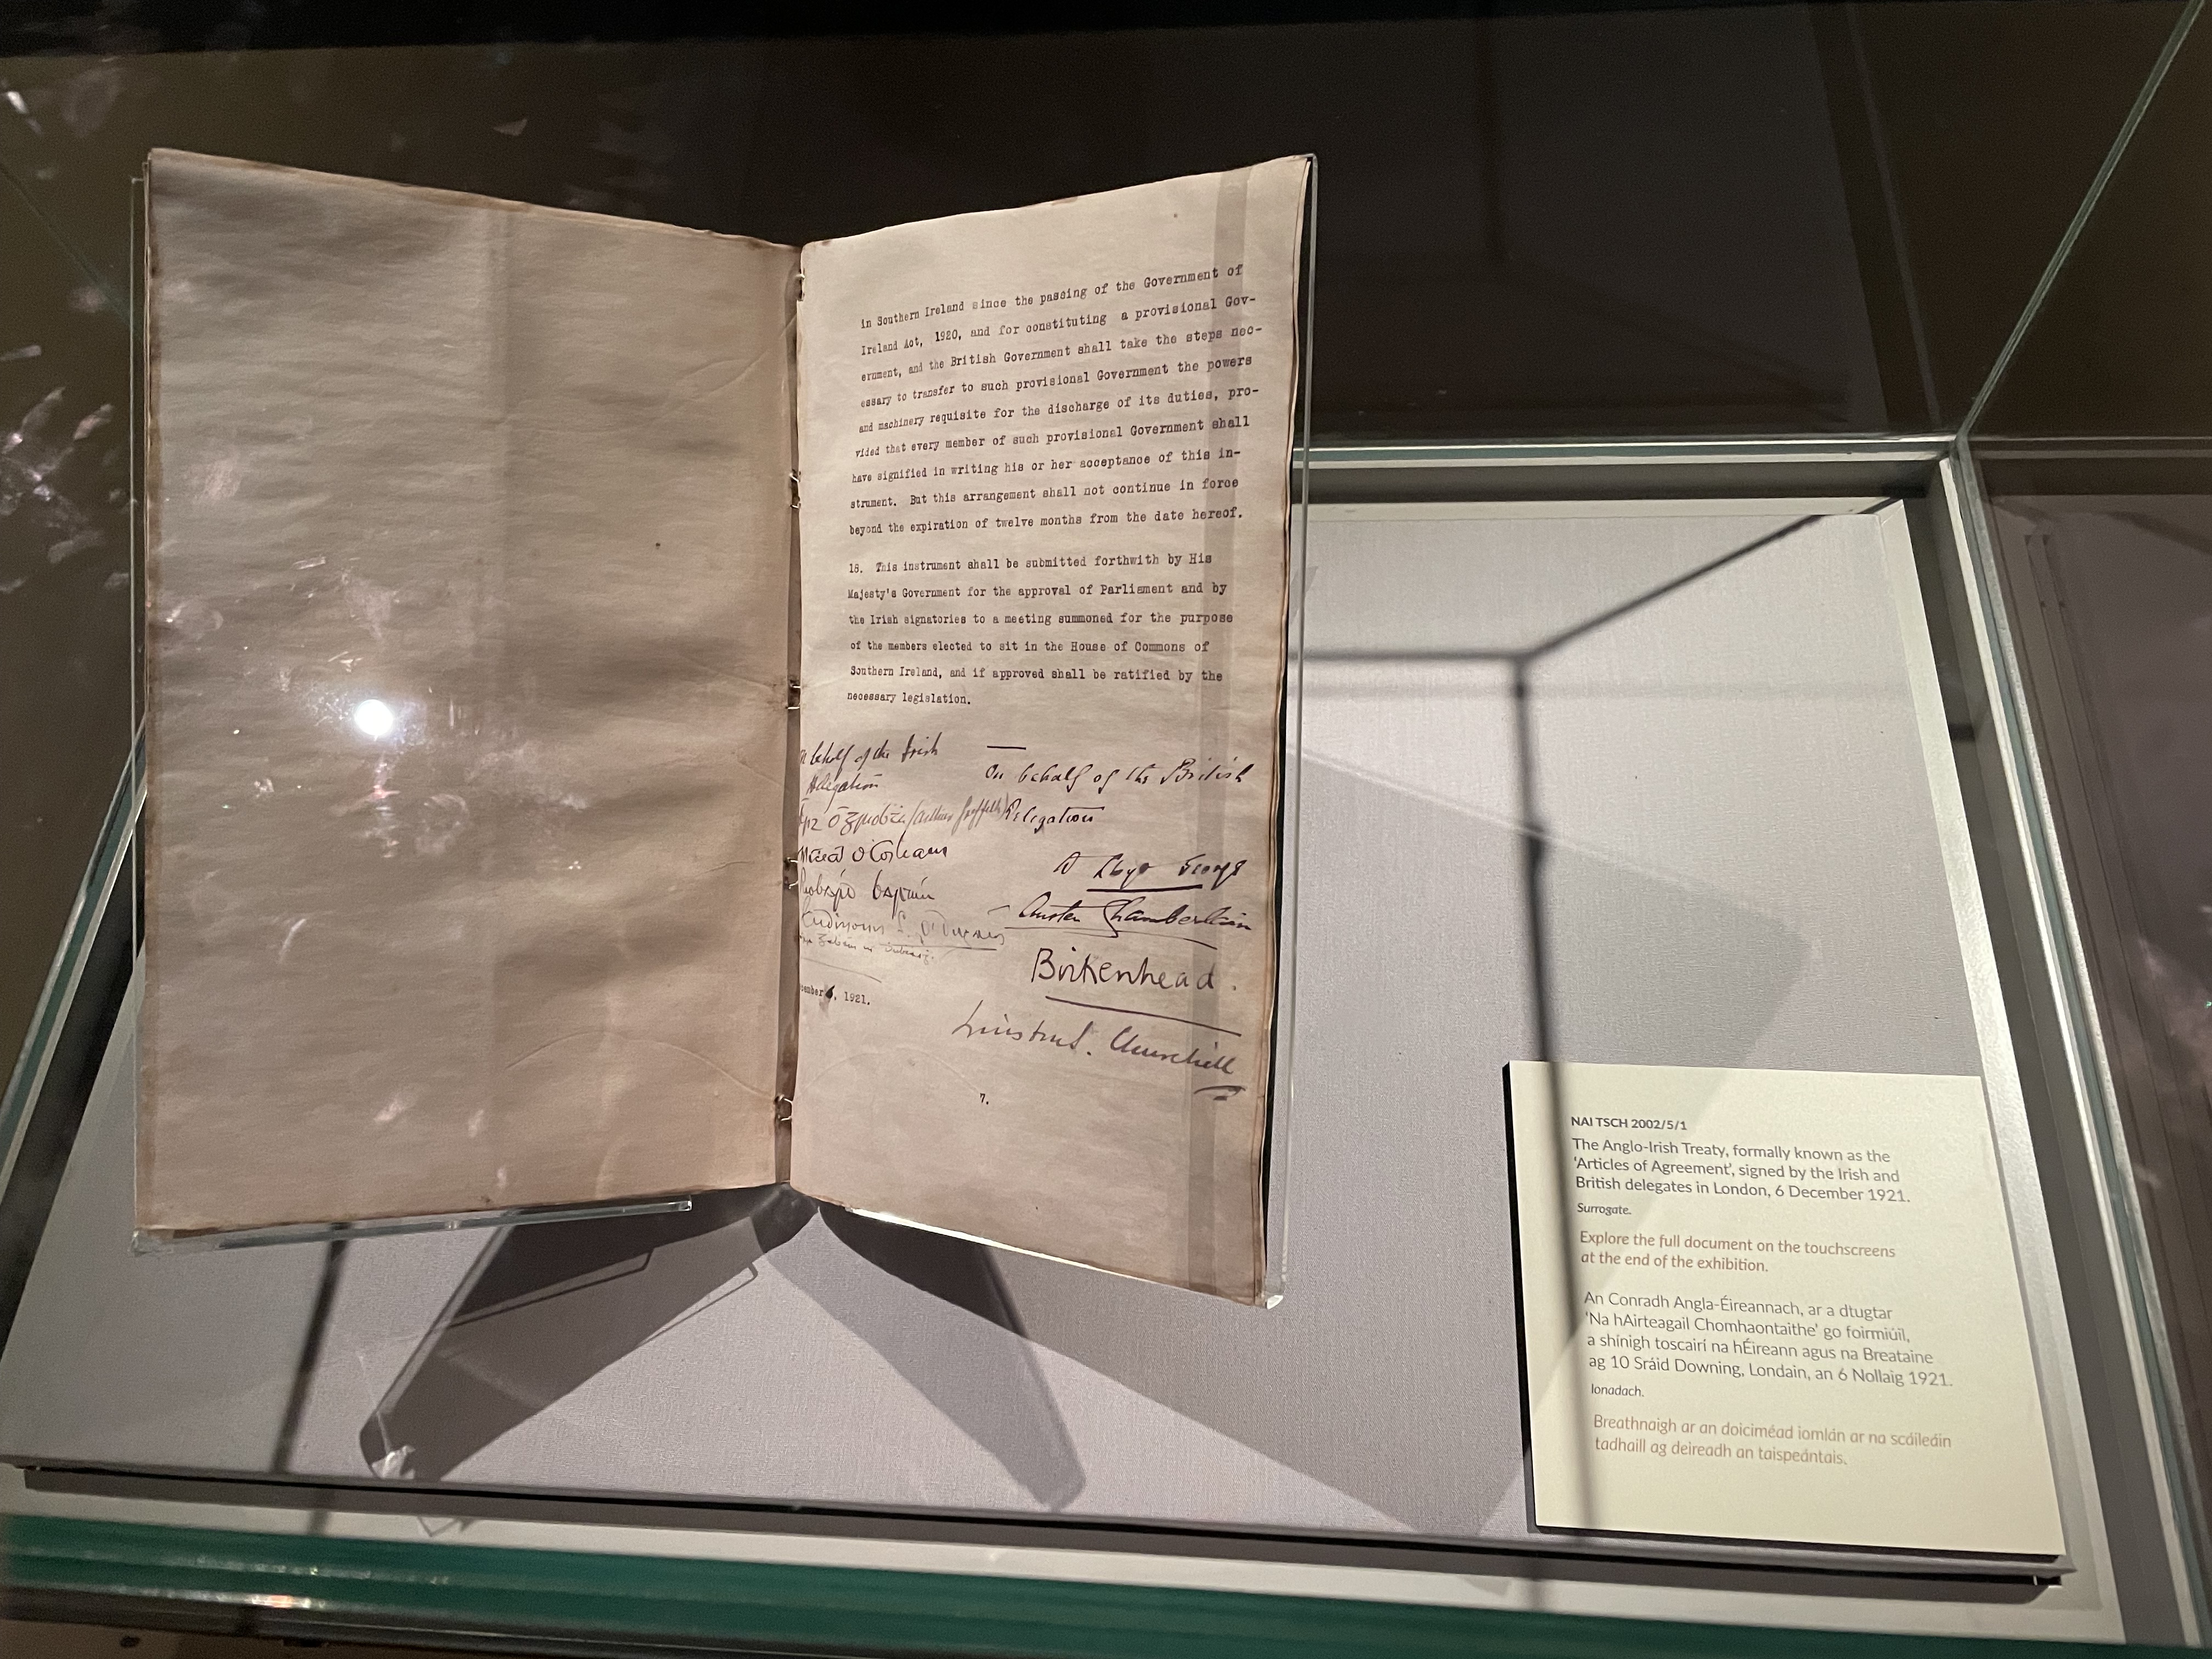 in Southern Ireland since the passing of the Government of
Ireland Act, 1920, and for constituting a provisional Gov-
ernment, and the British Government shall take the steps nec-
essary to transfer to such provisional Government the powers
and machinery requisite for the discharge of its duties, pro-
vided that every member of such provisional Government shall
have signified in writing his or her acceptance of this in-
strument. But this arrangement shall not continue in force
beyond the expiration of twelve months from the date hereof.
18. This instrument shall be submitted forthwith by His
Majesty's Government for the approval of Parliament and by
the Irish signatories to a meeting summoned for the purpose
of the members elected to sit in the House of Commons of
Southern Ireland, and if approved shall be ratified by the
necessary legislation.
behalf of the Irish
Delegation
(Arthur Griffith)
On behalf of the British
Delegation
D Lloyd George
Austen Chamberlain
Birkenhead.
Winston S. Churchill
cember 6, 1921.
7.
NAI TSCH 2002/5/1
The Anglo-Irish Treaty, formally known as the
'Articles of Agreement', signed by the Irish and
British delegates in London, 6 December 1921.
Surrogate.
Explore the full document on the touchscreens
at the end of the exhibition.
An Conradh Angla-Éireannach, ar a dtugtar
'Na hAirteagail Chomhaontaithe' go foirmiúil,
a shínigh toscairí na hÉireann agus na Breataine
ag 10 Sráid Downing, Londain, an 6 Nollaig 1921.
Ionadach.
Breathnaigh ar an doiciméad iomlán ar na scáileáin
tadhaill ag deireadh an taispeántais.